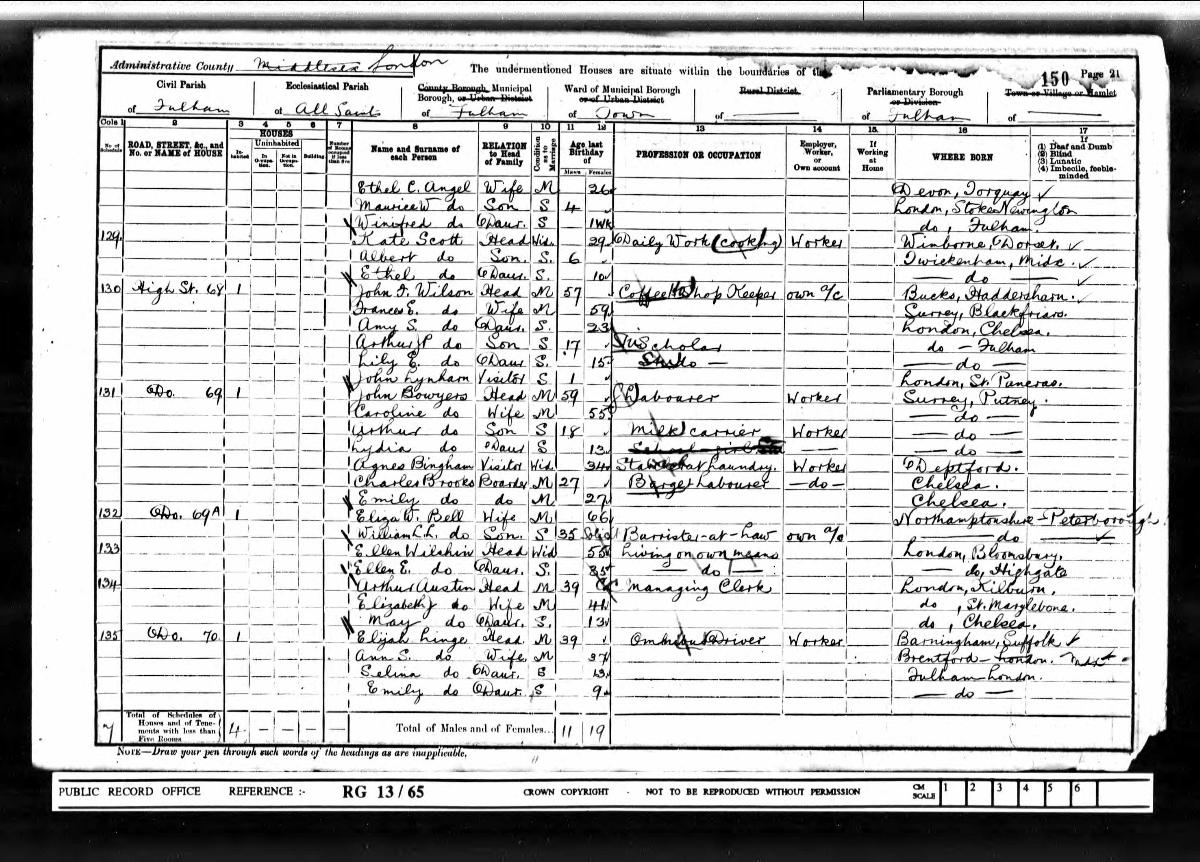 Administrative County Middlesex London The undermentioned Houses are situate within the boundaries of the 150 Page 21
Civil Parish Ecclesiastical Parish County Borough, Municipal Borough, or Urban District Ward of Municipal Borough or of Urban District Rural District Parliamentary Borough or Division Town or Village or Hamlet
of Fulham of All Saints of Fulham of Town of — of Fulham of —
Cols 1 2 3 4 5 6 7 8 9 10 11 12 13 14 15 16 17
No. of Schedule ROAD, STREET, &c., and No. or NAME of HOUSE HOUSES Inhabited Uninhabited In Occupation. Not in Occupation. Building Number of Rooms occupied if less than five Name and Surname of each Person RELATION to Head of Family Condition as to Marriage Age last Birthday of Males Females PROFESSION OR OCCUPATION Employer, Worker, or Own account If Working at Home WHERE BORN If (1) Deaf and Dumb (2) Blind (3) Lunatic (4) Imbecile, feeble-minded
Ethel C. Angel Wife M 26 Devon, Torquay
Maurice W do Son S 4 London, Stoke Newington
Winifred do Daur. S 1wk do, Fulham
129 Kate Scott Head Wid. 29 Daily Work (cooking) Worker Winborne, Dorset.
Albert do Son. S 6 Twickenham, Midx.
Ethel do Daur. S. 10 — do
130 High St. 68 1 John F. Wilson Head M 57 Coffee Shop Keeper own a/c Bucks, Haddersham.
Frances E. do Wife M 59 Surrey, Blackfriars.
Amy S. do Daur. S. 23 London, Chelsea.
Arthur P do Son S 17 Scholar do — Fulham
Lily E. do Daur S. 15 do — — do —
John Lynham Visitor S 1 London, St. Pancras.
131 Do. 69 1 John Bowyers Head M 59 Labourer Worker Surrey, Putney.
Caroline do Wife M 55 — do —
Arthur do Son S 18 Milk carrier Worker — do —
Lydia do Daur S 13 School girl — — do —
Agnes Bingham Visitor Wid. 34 at Laundry. Worker Deptford.
Charles Brooks Boarder M 27 Barge Labourer — do — Chelsea.
Emily do do M 27 Chelsea.
132 Do. 69A 1 Eliza W. Bell Wife M 66 Northamptonshire — Peterborough
William L. do Son. S 35 Barrister-at-Law own a/c — do —
133 Ellen Wilshin Head Wid 55 Living on own means London, Bloomsbury.
Ellen E. do Daur. S. 35 — do — — do, Highgate
134 Arthur Austin Head M 39 Managing Clerk London, Kilburn.
Elizabeth J do Wife M 41 do, St. Marylebone.
May do Daur. S 13 do, Chelsea.
135 Do. 70 1 Elijah Linge Head. M 39 Omnibus Driver Worker Barningham, Suffolk
Ann S. do Wife M 37 Brentford — London. Midx
Selina do Daur. S 13 Fulham London.
Emily do Daur. S 9 — do —
7 Total of Schedules of Houses and of Tenements with less than Five Rooms 4 — — — — Total of Males and of Females... 11 19
NOTE—Draw your pen through such words of the headings as are inapplicable.
PUBLIC RECORD OFFICE REFERENCE :- RG 13/65 CROWN COPYRIGHT - NOT TO BE REPRODUCED WITHOUT PERMISSION CM SCALE 1 2 3 4 5 6